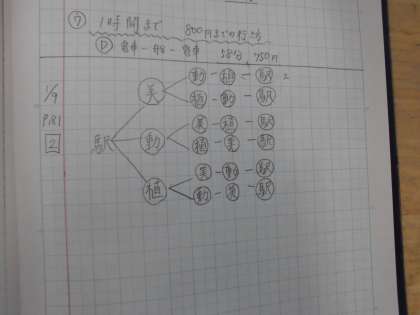 ウ 1時間まで 800円までの行き方
D 電車 - 船 - 電車 58分, 750円
1/9
P.81
2
駅
美 動 - 植 - 駅
植 - 動 - 駅
動 美 - 植 - 駅
植 - 美 - 駅
植 美 - 動 - 駅
動 - 美 - 駅